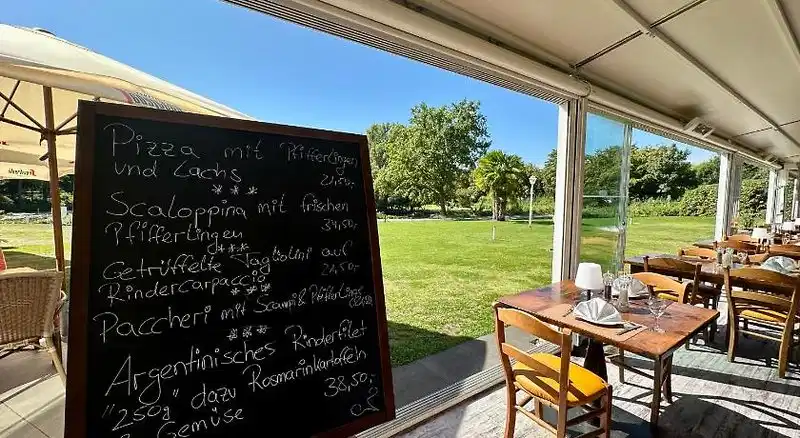 Pizza mit Pfifferlingen
und Lachs 21,50,-
***
Scaloppina mit frischen
Pfifferlingen 34,50,-
***
Getrüffelte Tagliolini auf
Rindercarpaccio
***
Paccheri mit Scampi & Pfifferlinge
***
Argentinisches Rinderfilet
"250g" dazu Rosmarinkartoffeln
Gemüse 38,50,-